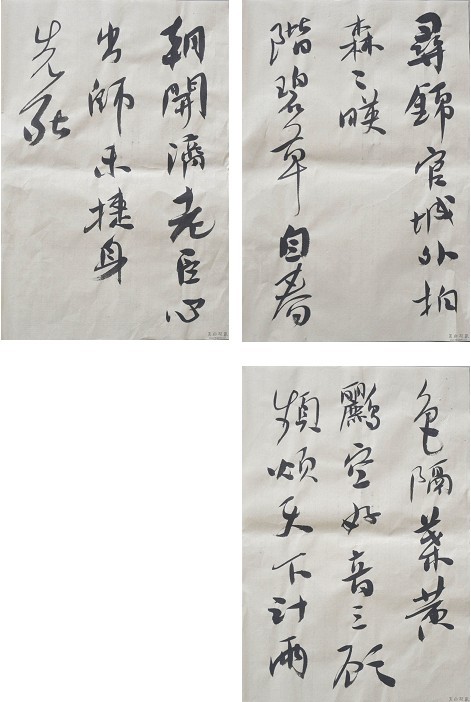 尋錦官城外柏
森〻暎
階碧草自春
色隔葉黃
鸝空好音三顧
頻煩天下計兩
朝開濟老臣心
出師未捷身
先死